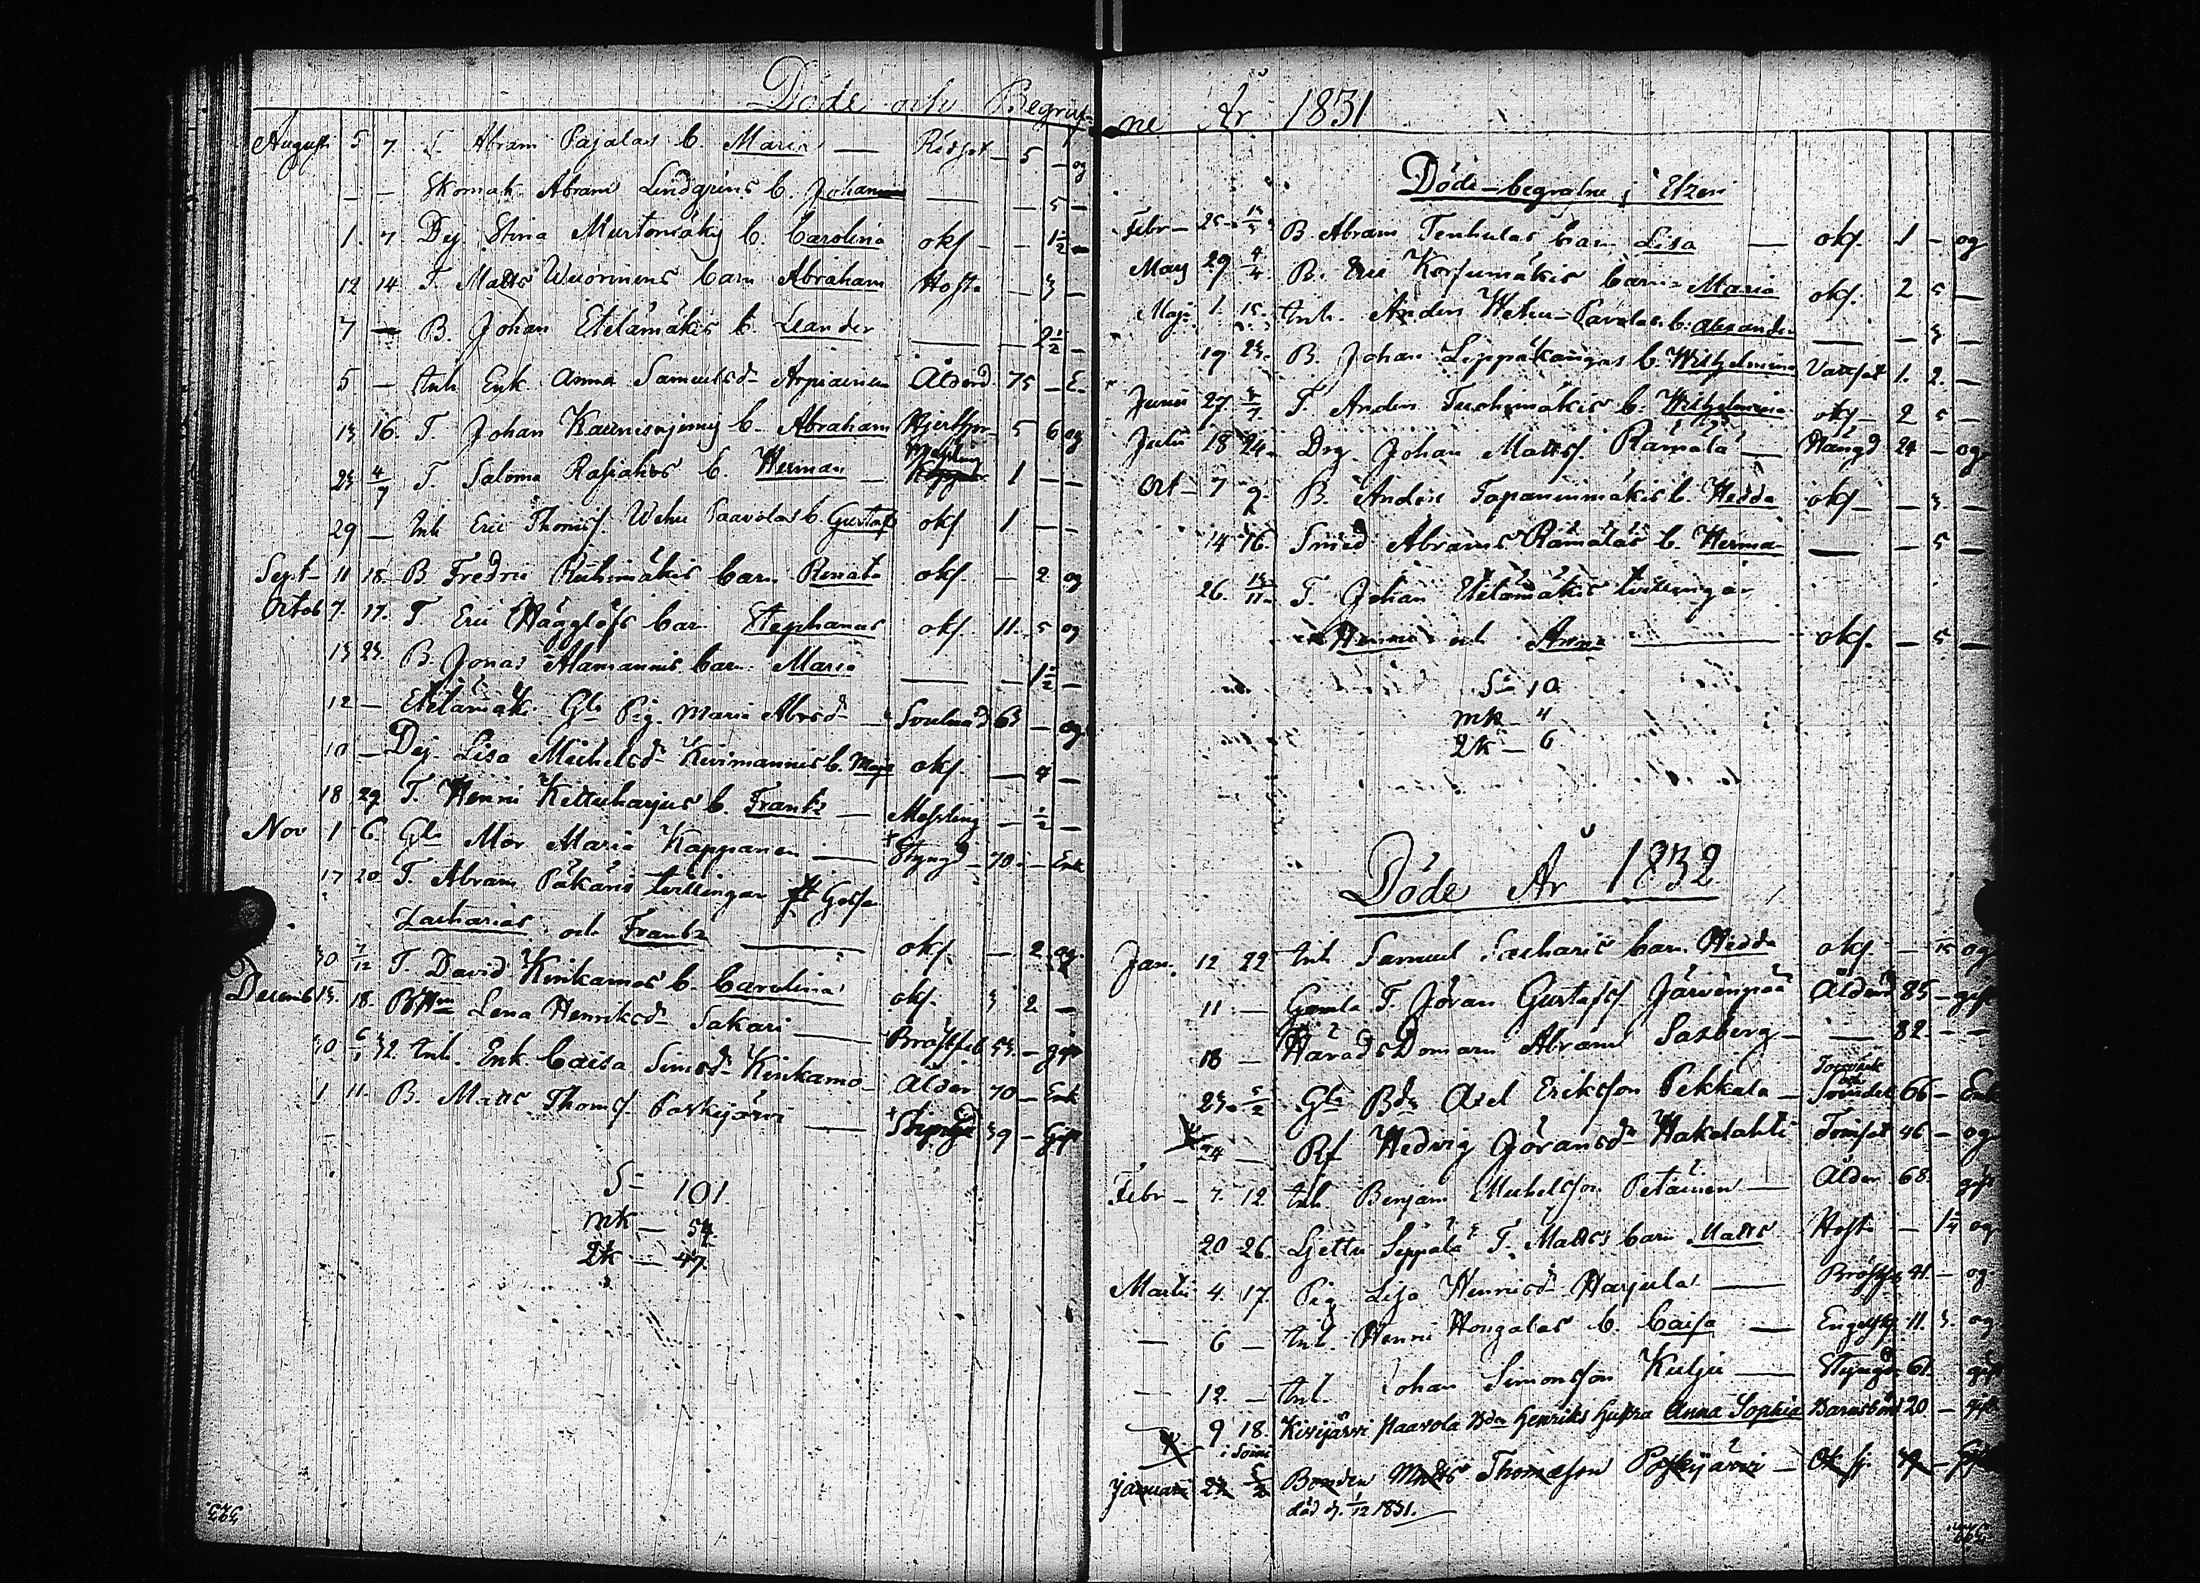 Döde och Begraf-
August 5 7 T. Abram Pajalas b. Maria — Rödsot — 5 — og
— — Skomak. Abram Lindgrens b. Johan — — 5 —
1. 7 Dej. Stina Murtomäkis b. Carolina okf — — 1½ —
12 14 T. Matts Wuorinens barn Abraham Hosta — 3 —
7 — B. Johan Etelämäkis b. Leander — — 2½ —
5 — Inh. Enk. Anna Samuelsd. Arpiainen Ålderd. 75 — E.
13 16. T. Johan Kaunisnjemis b. Abraham 5 6 og
23 4/9 T. Salomo Rajiahos b. Herman — Messling 1 — —
29 — Inh. Eric Thomss. Wehu Paavolas b. Gustaf okf 1 — —
Sept — 11 18. B. Fredric Riihimäkis barn Renata okf — 2 og
Octob 7. 17. T. Eric Häggløfs barn Stephanus okf. 11. 5 og
13 23. B. Jonas Alamannis barn Maria — — 1½ —
12 — Etelämäki Gla Pig. Maria Abrsdr — 63 — og
10 — Dej. Lisa Michelsdr Kivimannis b. Maja okf. — 4 —
18 29 T. Henric Kettuharjus b. Frants — Messling — ½ —
Nov 1 6. Gla Mor Maria Kappanen — Styngd — 70 — Enk
17 20 T. Abram Päkäris tvillingar
Zacharias och Frants — okf. — 2 og.
30 7/12 T. David Kinkamos b. Carolina okf. 3 2 —
Decemb 13. 18. Lena Henriksdr Sakari — Bröstfeb 53. — gift
30 6/1 32. Inh. Enk. Caisa Simsdr Kinkamo — Ålder 70 — Enk
1 11. B. Matts Thomss. Paskijärvi — 39 — Gift
S— 101
mk — 54
Qk — 47
ne År 1831
Döde — begrafne i Etzeri
Febr — 25 — 13/3 B. Abram Tenhulas barn Lisa — okf. 1 — og
Mars 29 4/4. B. Eric Korsumäkis barn Maria okf. 2 5 —
Maji 1. 15. Inh. Anders Wehu-Pavolas b. Alexander — — 3 —
19 23. B. Johan Leppäkangas b. Wilhelmina Vattsot 1. 2. —
Junii 27 3/7 T. Anders Tuchimäkis b. Wilhelmina okf — 2 5 —
Julii 18 24. Drg Johan Mattss. Rämälä — Hängd 24 — og
Oct — 7 9 B. Anders Tapaninmäkis b. Hedda okf — — 3. —
14 16. Smed Abrams Rämäläs b. Herman — — 5 —
26 13/11 T. Johan Etelämäkis tvillingar
Henric och Anna — okf. — 5 —
S— 10
mk — 4
Qk — 6
Döde År 1832
Jan. 12 22 Inh. Samuel Sacharis barn Hedda okf. — og
11 — Gamla T. Jöran Gustafss. Järvenpää Ålderd 85 — gift
18 — HäradsDomarn Abram Saxberg — — 82 — —
23 — 5/2 Gla Bdn Axel Eriksson Pekkala — 66 — Enk
24 — Rf Hedvig Jöransdr Hakalahti 46 — og
Febr — 7. 12. Inh. Benjam Michelsson Petäinen — Ålder 68. gift
20 26. Ljettu Seppälä T. Matts barn Matts Hosta — 1¼ og
Martii 4. 17. Pig. Lisa Henricsdr Harjula — Bröstfeb 41. — og
— 6 — Inh. Henric Hongalas b. Caisa — 11. 3. og
— 12. — Inh. Johan Simonsson Kulju — Styng 61. gift
9 18. Kivijärvi Paavola Bdn Henriks hustru Anna Sophia Barnsbörd 20. — gift
i Soini
Januari 22 5/2 Bonden Matts Thomasson Paskijärvi — 39 — Gift
död d. 1/12 1831.